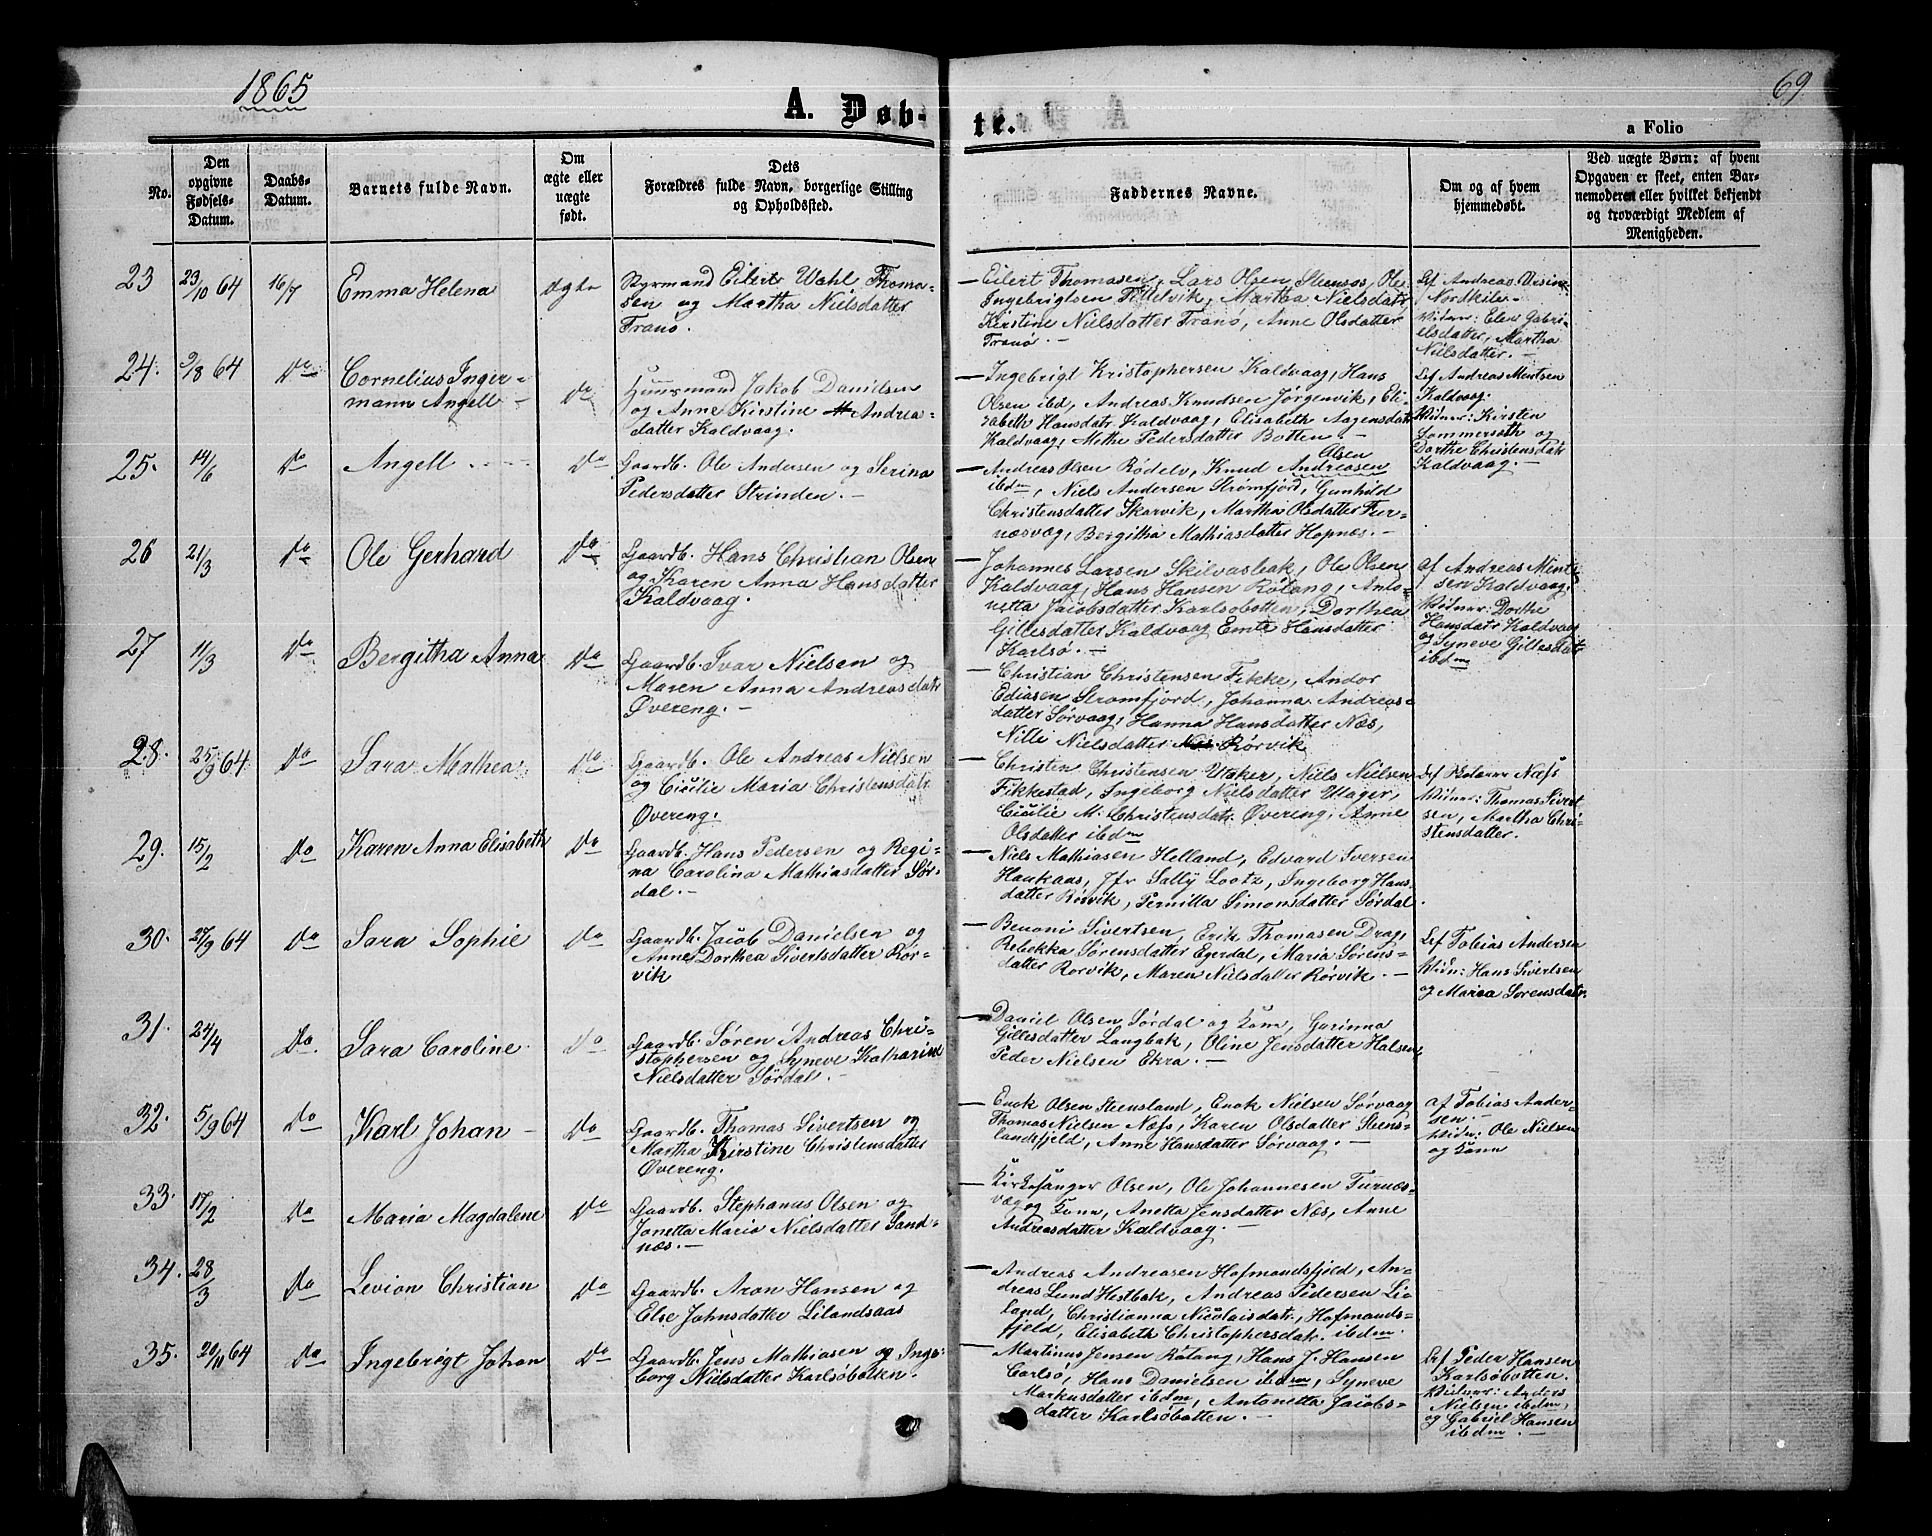 1865
69
A. Døb-
te.
a Folio
No.
Den
opgivne
Fødsels-
Datum.
Daabs-
Datum.
Barnets fulde Navn.
Om
ægte eller
uægte
født.
Dets
Forældres fulde Navn, borgerlige Stilling
og Opholdssted.
Faddernes Navne.
Om og af hvem
hjemmedøbt.
Ved uægte Børn: af hvem
Opgaven er skeet, enten Bar-
nemoderen eller hvilket bekjendt
og troværdigt Medlem af
Menigheden.
23 23/10 64 16/7 Emma Helena ægte
Eilert Wahl Thoma-
sen og Martha Nielsdatter
Tranø.
— Eilert Thomasen, Lars Olsen Steensøs, Ole
Ingebrigtsen Fillelvik, Martha Nielsdatr
Kirstine Nielsdatter Tranø, Anne Olsdatter
Tranø. —
Andreas
Nordkile —
Widner: Elen Gabri-
elsdatter, Martha
Nielsdatter. —
24. 3/8 64 Do Cornelius Inger-
mann Angell — Do
Huusmand Jakob Danielsen
og Anne Kirstine Andreas-
datter Kaldvaag.
— Ingebrigt Kristophersen Kaldvaag, Hans
Olsen ibd, Andreas Knudsen Jørgenvik, Eli-
sabeth Hansdatr Kaldvaag, Elisabeth Aagensdatr
Kaldvaag, Methe Pedersdatter Botten. —
af Andreas Mentsen
Kaldvaag.
Widner: Kirsten
Sommerseth og
Dorthe Christensdatr
Kaldvaag. —
25. 14/6 Do Angell Do
Gaardb. Ole Andersen og Serina
Pedersdatter Strinden. —
Olsen
— Andreas Olsen Rødelv, Knud Andreasen
ibdm, Niels Andersen Strømfjord, Gunhild
Christensdatter Skarvik, Martha Olsdatter Fur-
næsvæg, Bergitha Mathiasdatter Hopnæs. —
26 21/3 Do Ole Gerhard Do
Gaardb. Hans Christian Olsen
og Karen Anna Hansdatter
Kaldvaag.
Johannes Larsen Skilvasbak, Ole Olsen
Kaldvaag, Hans Hansen Røtang, Anto-
netta Jacobsdatter Karlsøbotten, Dorthea
Gillesdatter Kaldvaag Emte Hansdatter
Karlsø. —
af Andreas Ment-
sen Kaldvaag.
Widner: Dorthe
Hansdatr Kaldvaag
og Syneve Gillesdatr
ibdm
27 11/3 Do Bergitha Anna Do
Gaardb. Ivar Nielsen og
Maren Anna Andreasdatr
Øvereng. —
— Christian Christensen Fikke, Andor
Ediasen Strømfjord, Johanna Andreas-
datter Sørvaag, Hanna Hansdatter Næs,
Nilli Nielsdatter Rørvik
28. 25/9 64 Do Sara Mathea Do
Gaardb. Ole Andreas Nielsen
og Cicilie Maria Christensdatr
Øvereng.
— Christen Christensen Utaker, Niels Nielsen
Fikkestad, Ingeborg Nielsdatter Utager,
Cicilie M. Christensdatr. Øvereng, Anne
Olsdatter ibdm
Næss
Widner: Thomas Sivert
sen, Martha Chri-
stensdatter.
29. 15/2 Do Karen Anna Elisabeth Do
Gaardb. Hans Pedersen og Regi-
na Carolina Mathiasdatter Sør-
dal. —
— Niels Mathiasen Helland, Edvard Iversen
Haukaas, Jfr Sally Lootz, Ingeborg Hans
datter Rørvik, Pernilla Simonsdatter Sørdal.
30. 27/9 64 Do Sara Sophie Do
Gaardb. Jacob Danielsen og
Anne Dorthea Sivertsdatter Rør-
vik
— Benoni Sivertsen, Erik Thomasen Drag,
Rebekka Sørensdatter Egerdal, Maria Sørens-
datter Rørvik, Maren Nielsdatter Rørvik. —
af Tobias Andersen
Widn: Hans Sivertsen
og Maria Sørensdatr.
31. 24/4 Do Sara Caroline Do
Gaardb. Søren Andreas Chri-
stophersen og Syneve Katharina
Nielsdatter Sørdal. —
Daniel Olsen Sørdal og Kone, Gurinna
Gillesdatter Langbak, Oline Jensdatter Halsen
Peder Nielsen Ekra. —
32. 5/9 64 Do Karl Johan — Do
Gaardb. Thomas Sivertsen og
Martha Kirstine Christensdatter
Øvereng.
— Enok Olsen Steensland, Enok Nielsen Sørvaag
Thomas Nielsen Næss, Karen Olsdatter Steens-
landsfjeld, Anne Hansdatter Sørvaag. —
af Tobias Ander-
sen
Widn: Ole Nielsen
og Kone
33. 17/2 Do Maria Magdalene Do
Gaardb. Stephanus Olsen og
Jonetta Maria Nielsdatter Sand-
næs. —
— Kirkesanger Olsen, Ole Johannesen Furnes-
væg og Kone, Anetta Jensdatter Næs, Anne
Andreasdatter Kaldvaag. —
34. 28/3 Do Levion Christian Do
Gaardb. Aron Hansen og
Else Johnsdatter Lilandsaas
— Andreas Andreasen Hofmandsfjeld, An-
dreas Lund Hestbak, Andreas Pedersen Li-
land, Christianna Nicolaisdatr, Hofmands-
fjeld, Elisabeth Christophersdatr. ibdm.
35. 20/11 64 Do Ingebrigt Johan Do
Gaardb. Jens Mathiasen og Inge-
borg Nielsdatter Karlsøbotten.
— Martinus Jensen Røtang, Hans J. Hansen
Carlsø, Hans Danielsen ibdm, Syneve
Markusdatter ibdm, Antonetta Jacobs-
datter Karlsøbotten. —
af Peder Hansen
Karlsøbotten.
Widner: Anders
Nielsen ibdm,
og Gabriel Hansen
ibdm. —